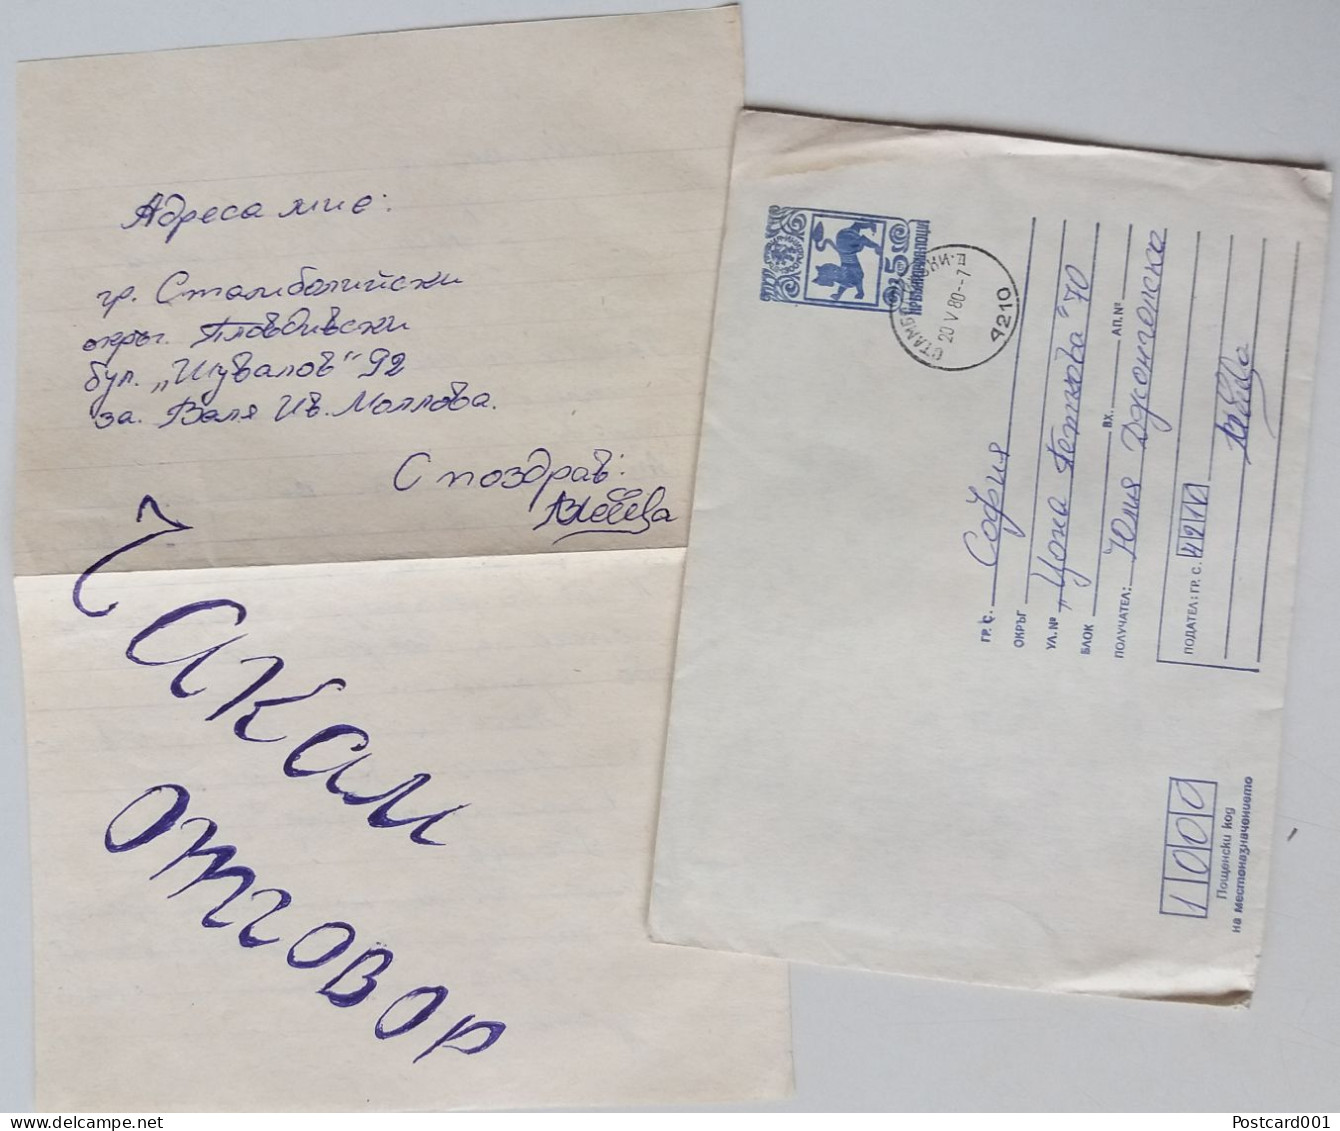 Адреса ми е:
гр. Стамболийски
окръг. Пловдивски
бул. „Шувалов" 92
за. Валя Ив. Моллова.
С поздрав:
Чакам
отговор
5
НР БЪЛГАРИЯ ПОЩИ
20 V 80 --7
4210
ГР. С. София
ОКРЪГ
УЛ. № „Цона Петкова" 70
БЛОК ВХ. АП. №
ПОЛУЧАТЕЛ: Юлия
ПОДАТЕЛ: ГР. С. 4210
1000
Пощенски код
на местоназначението
Postcard001